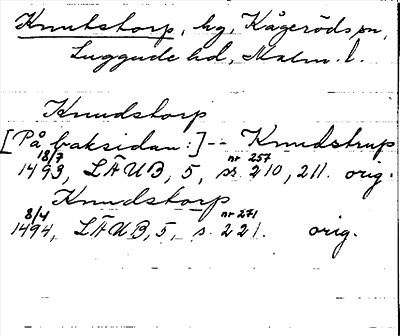 Knutstorp, hg, Kågeröds sn,
Luggude hd, Malm. l.
Knudstorp
[På baksidan:] -- Knudstrup
18/7 nr 257
1493, LÄUB, 5, s. 210, 211. orig.
Knudstorp
8/4 nr 271
1494, LÄUB, 5, s. 221. orig.